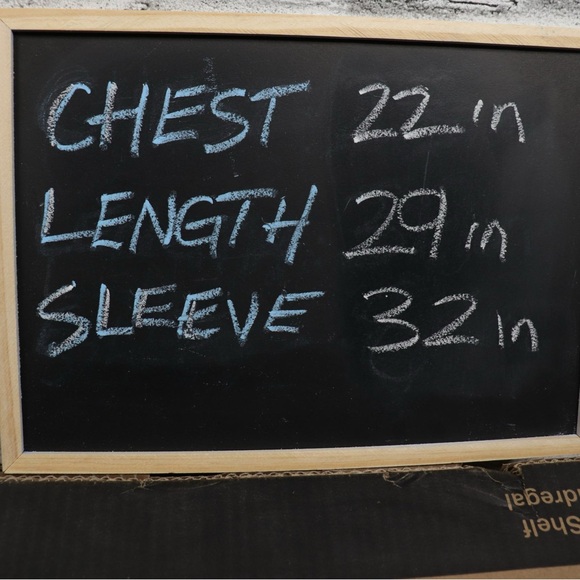 CHEST 22 in
LENGTH 29 in
SLEEVE 32 in
Shelf